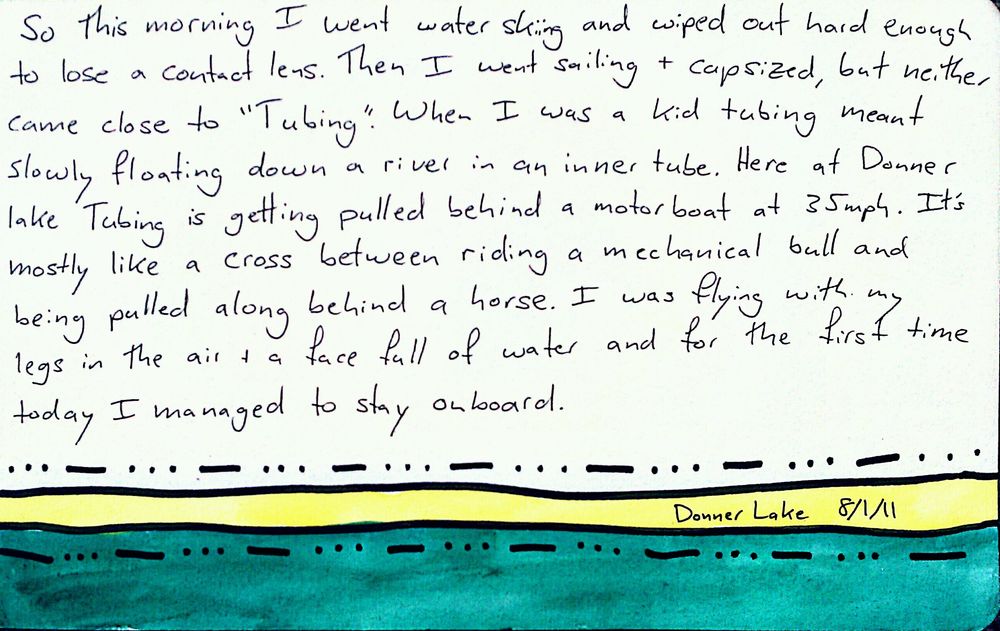 So this morning I went water skiing and wiped out hard enough
to lose a contact lens. Then I went sailing + capsized, but neither
came close to "Tubing". When I was a kid tubing meant
slowly floating down a river in an inner tube. Here at Donner
lake Tubing is getting pulled behind a motorboat at 35mph. It's
mostly like a cross between riding a mechanical bull and
being pulled along behind a horse. I was flying with my
legs in the air + a face full of water and for the first time
today I managed to stay onboard.
Donner Lake 8/1/11